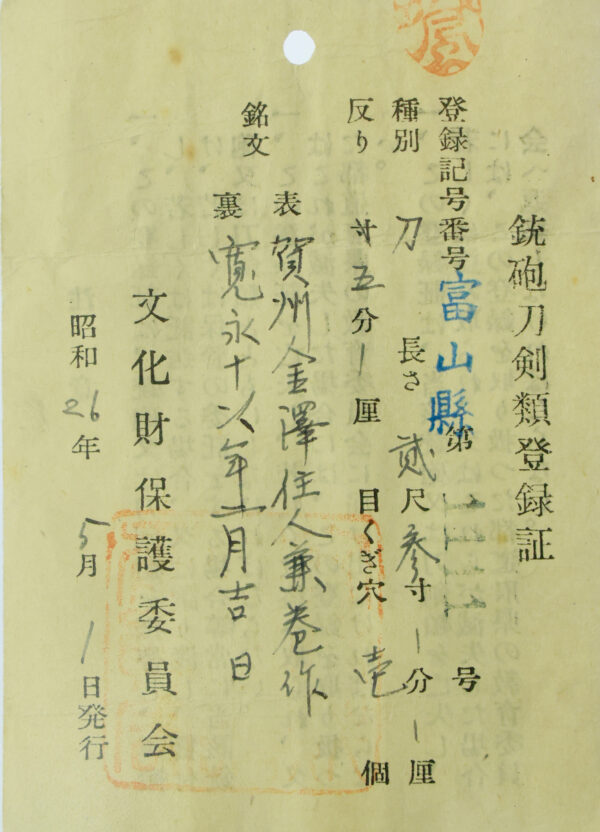 銃砲刀剣類登録証
登録記号番号 富山縣 第 号
種別 刀 長さ 貮尺参寸 分 厘
反り 五分 厘 目くぎ穴 壱個
銘文 表 賀州金澤住人兼巻作
裏 寛永十 年二月吉日
文化財保護委員会
昭和26年5月1日発行